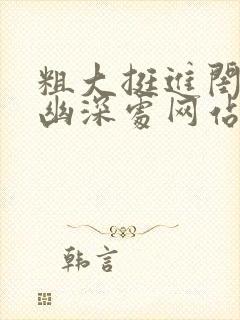 粗大挺進閨
幽深處网佔
韩言